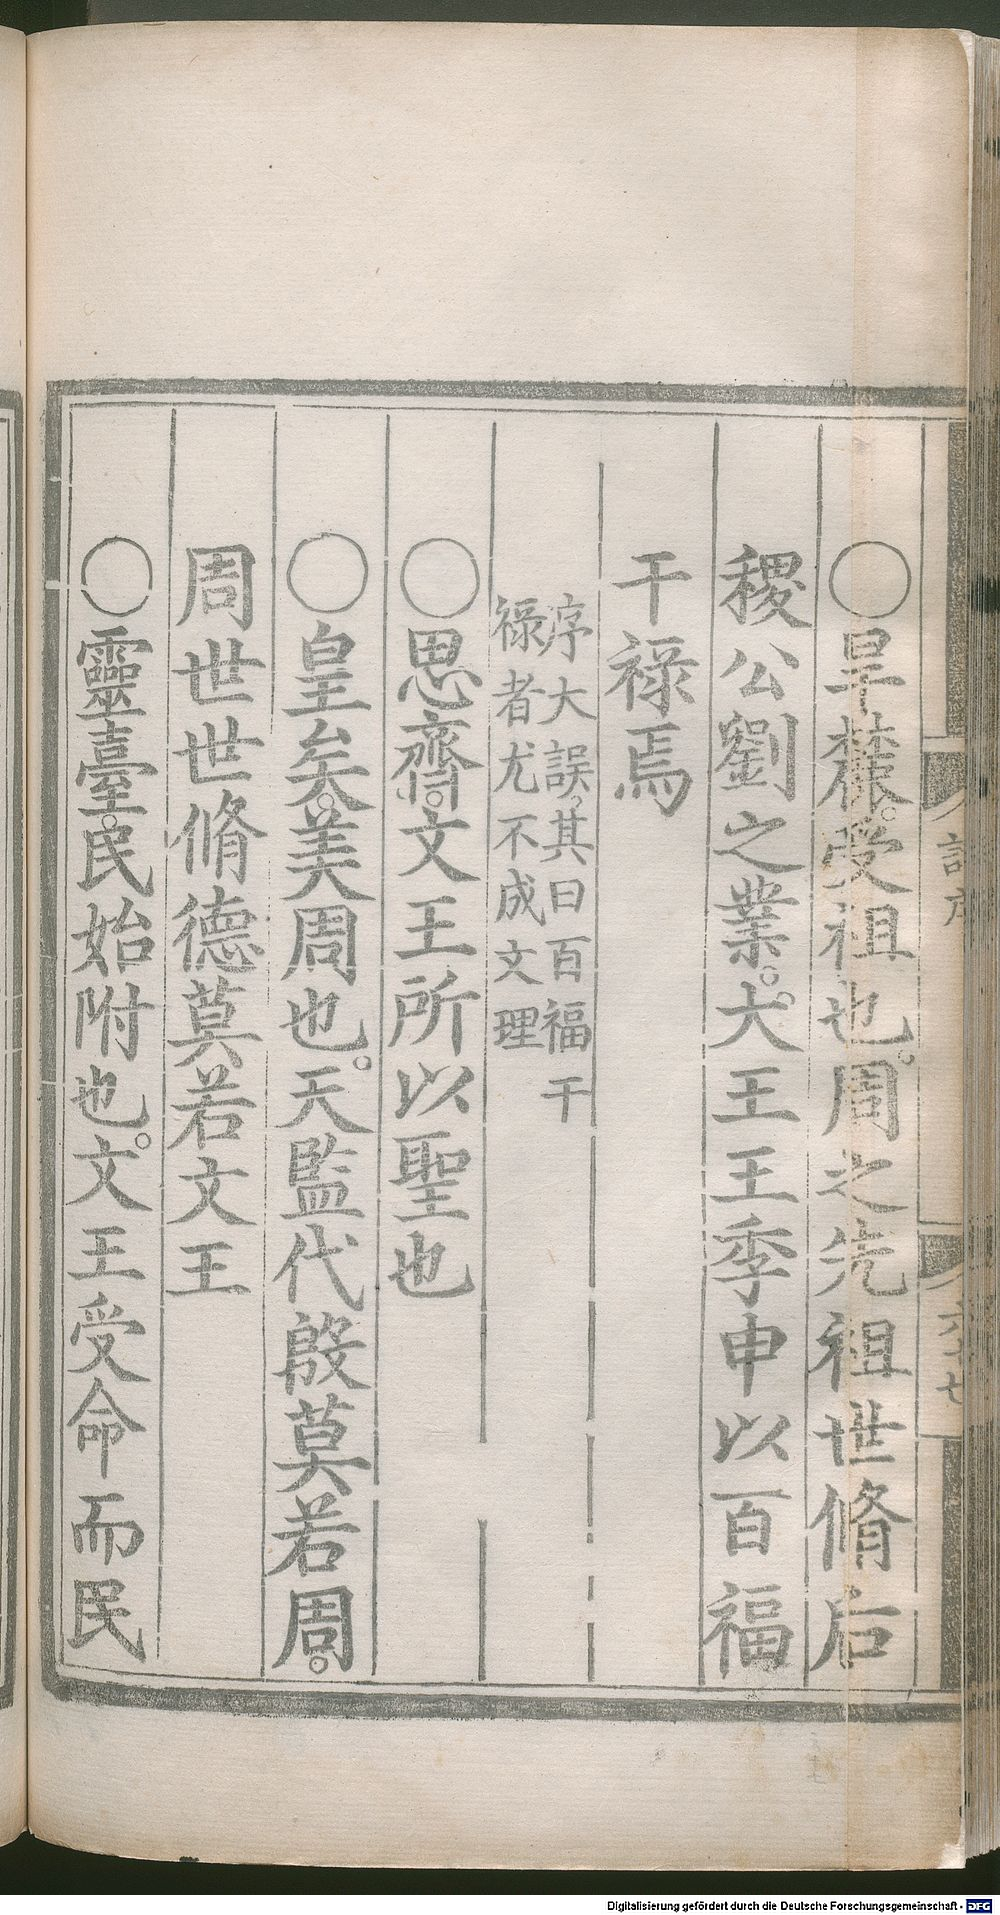 詩序
六十七
○旱麓。受祖也。周之先祖世脩后
稷公劉之業。大王王季申以百福
干祿焉
序大誤。其曰百福干
祿者尤不成文理
○思齊。文王所以聖也
○皇矣。美周也。天監代殷莫若周。
周世世脩德莫若文王
○靈臺。民始附也。文王受命而民
Digitalisierung gefördert durch die Deutsche Forschungsgemeinschaft - DFG